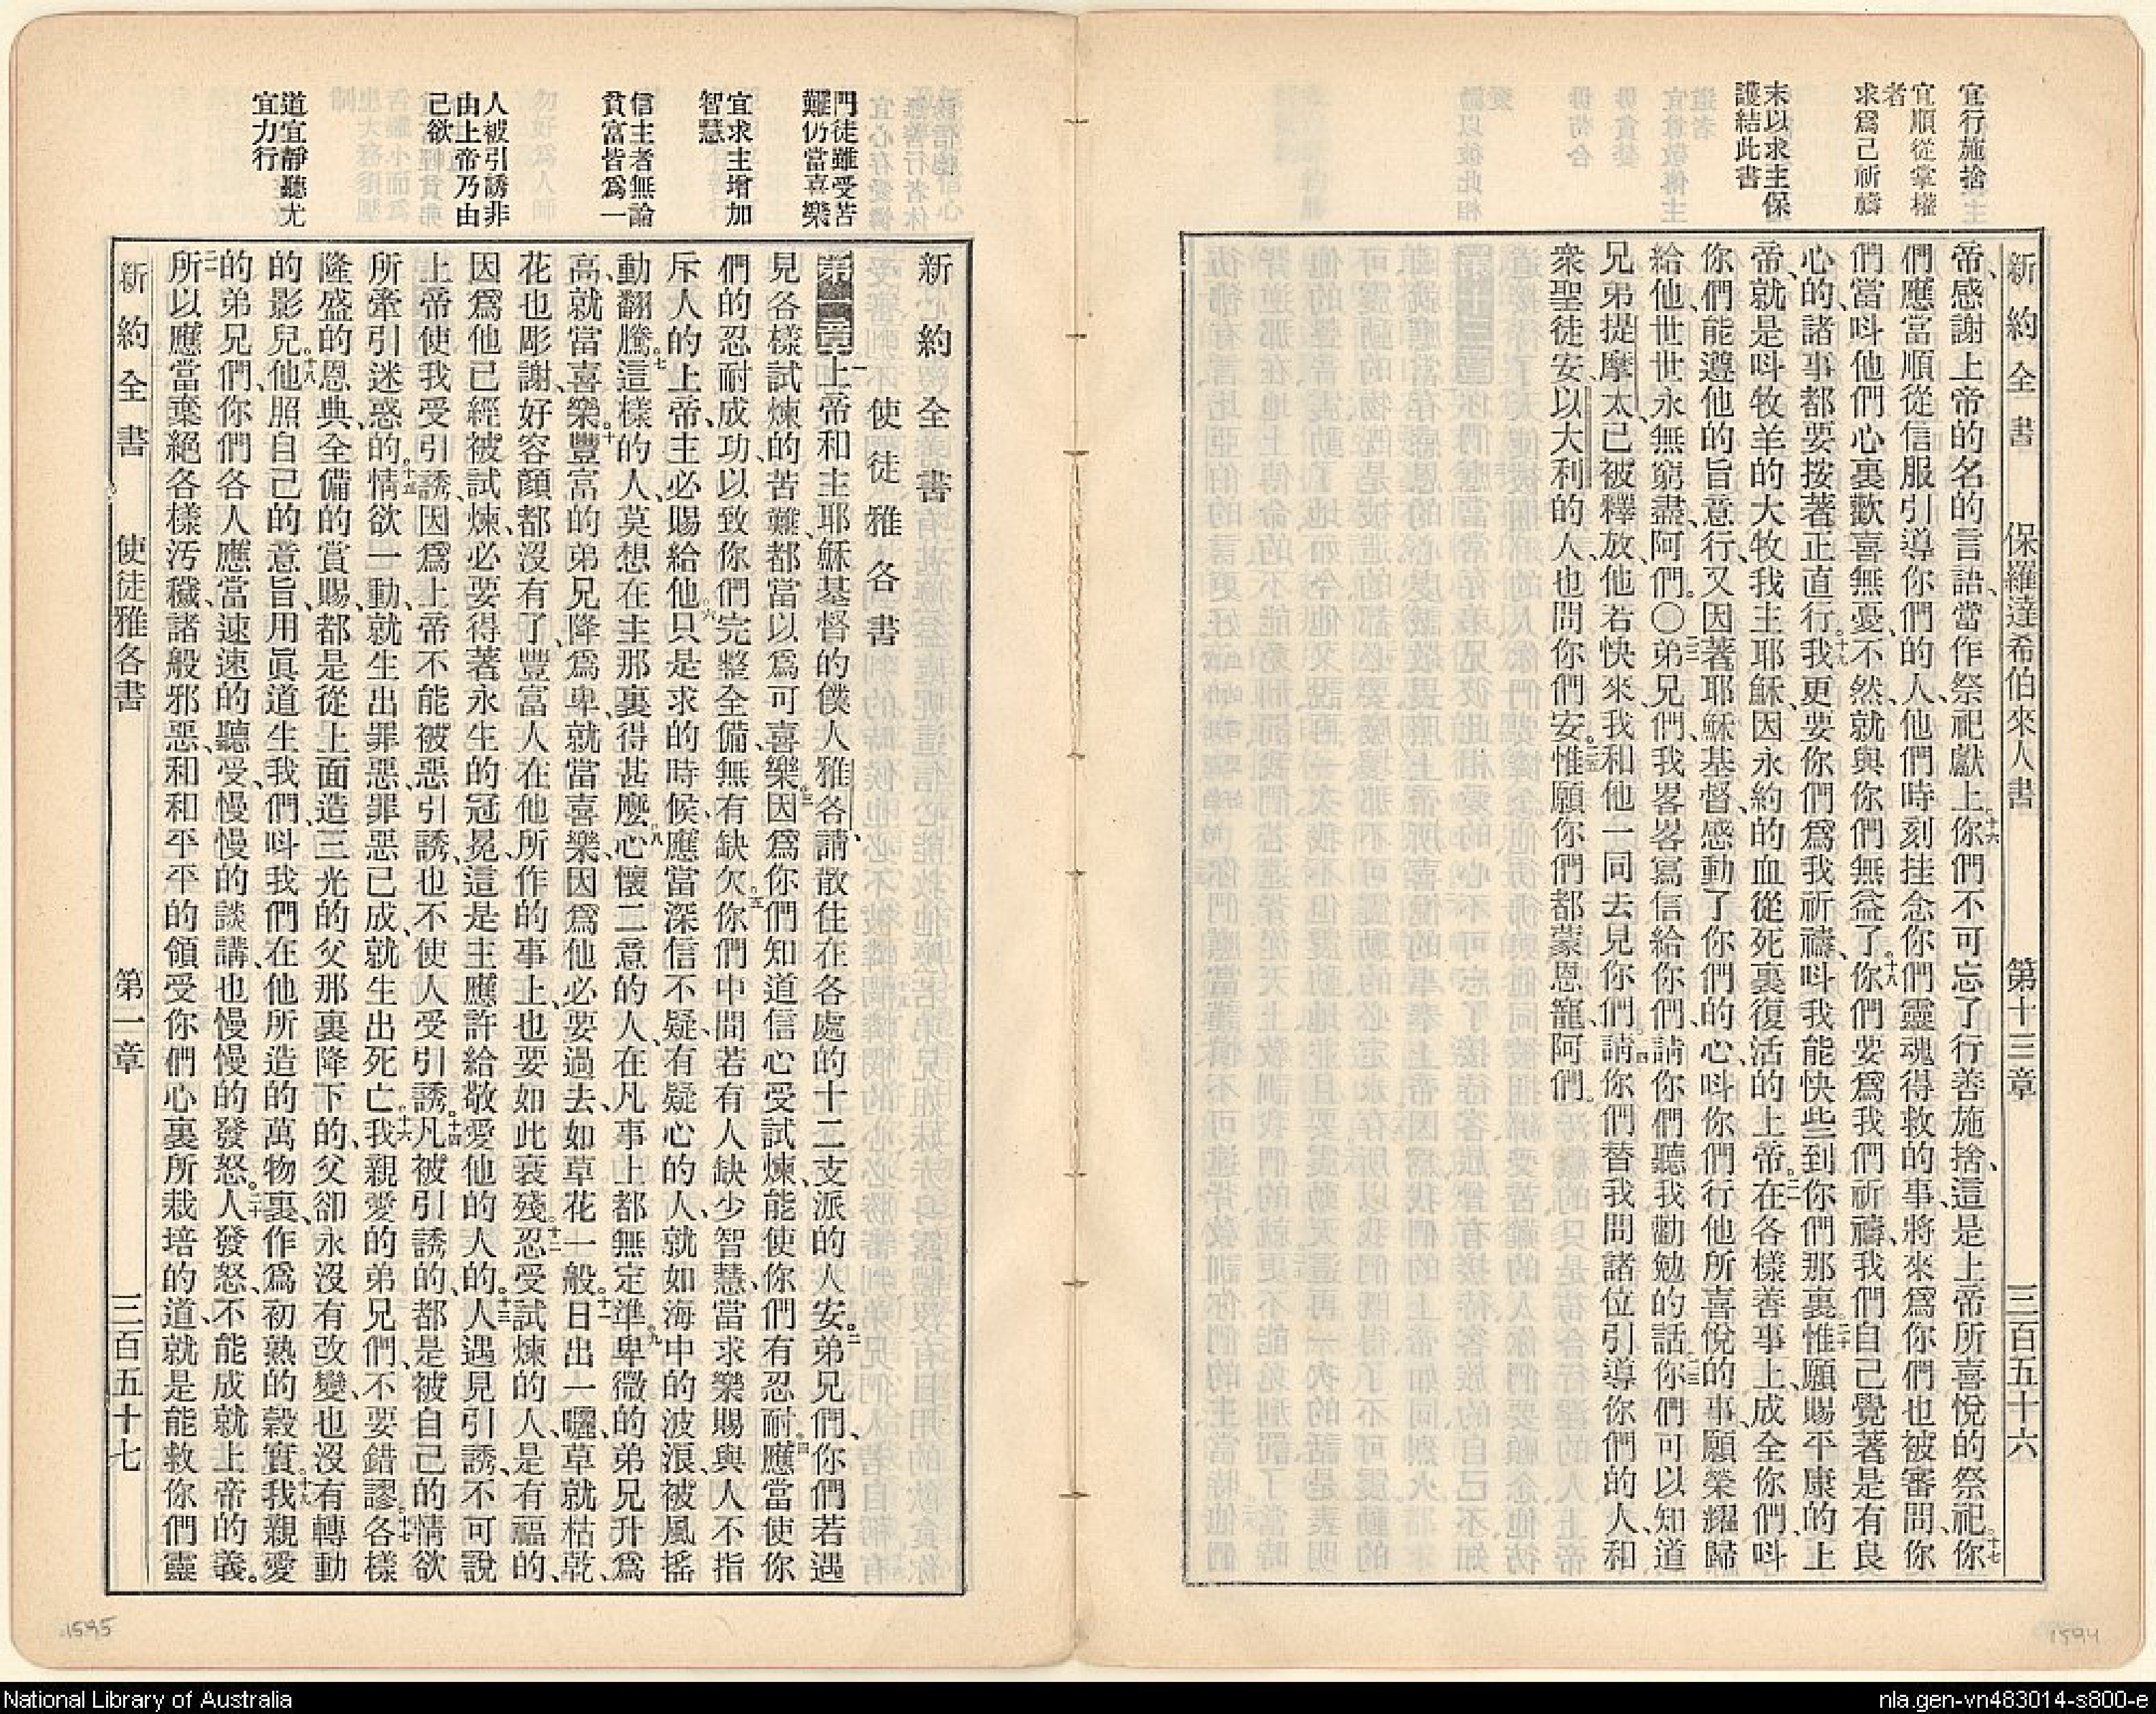 宜行施捨
宜順從掌權
者
求爲己祈禱
末以求主保
護結此書
新約全書 保羅達希伯來人書 第十三章 三百五十六
帝、感謝上帝的名的言語、當作祭祀獻上。十六你們不可忘了行善施捨、這是上帝所喜悅的祭祀。十七你
們應當順從信服引導你們的人、他們時刻挂念你們靈魂得救的事、將來爲你們也被審問、你
們當呌他們心裏歡喜無憂、不然、就與你們無益了。十八你們要爲我們祈禱、我們自己覺著是有良
心的、諸事都要按著正直行。十九我更要你們爲我祈禱、呌我能快些到你們那裏。二十惟願賜平康的上
帝、就是呌牧羊的大牧我主耶穌、因永約的血從死裏復活的上帝。二一在各樣善事上、成全你們、呌
你們能遵他的旨意行、又因著耶穌基督、感動了你們的心、呌你們行他所喜悅的事、願榮耀歸
給他、世世永無窮盡、阿們。〇二二弟兄們、我畧畧寫信給你們、請你們聽我勸勉的話。二三你們可以知道
兄弟提摩太、已被釋放、他若快來、我和他一同去見你們。二四請你們替我問諸位引導你們的人、和
衆聖徒安、以大利的人、也問你們安。二五惟願你們都蒙恩寵、阿們。
門徒雖受苦
難仍當喜樂
宜求主增加
智慧
信主者無論
貧富皆爲一
人被引誘非
由上帝乃由
己欲
道宜靜聽尤
宜力行
新約全書
使徒雅各書
第一章一上帝和主耶穌基督的僕人雅各、請散住在各處的十二支派的人安。二弟兄們、你們若遇
見各樣試煉的苦難、都當以爲可喜樂。三因爲你們知道信心受試煉、能使你們有忍耐。四應當使你
們的忍耐成功、以致你們完整全備、無有缺欠。五你們中間若有人缺少智慧、當求樂賜與人不指
斥人的上帝、主必賜給他。六只是求的時候、應當深信不疑、有疑心的人、就如海中的波浪、被風搖
動翻騰。七這樣的人、莫想在主那裏得甚麼。八心懷二意的人、在凡事上都無定準。九卑微的弟兄升爲
高、就當喜樂。十豐富的弟兄降爲卑、就當喜樂、因爲他必要過去、如草花一般。十一日出一曬、草就枯乾、
花也彫謝、好容顏都沒有了、豐富人在他所作的事上、也要如此衰殘。十二忍受試煉的人、是有福的、
因爲他已經被試煉、必要得著永生的冠冕、這是主應許給敬愛他的人的。十三人遇見引誘、不可說
上帝使我受引誘、因爲上帝不能被惡引誘、也不使人受引誘。十四凡被引誘的、都是被自己的情欲
所牽引迷惑的。十五情欲一動、就生出罪惡、罪惡已成、就生出死亡。十六我親愛的弟兄們、不要錯謬。十七各樣
隆盛的恩典、全備的賞賜、都是從上面造三光的父那裏降下的、父卻永沒有改變、也沒有轉動
的影兒。十八他照自己的意旨、用眞道生我們、呌我們在他所造的萬物裏、作爲初熟的穀實。十九我親愛
的弟兄們、你們各人應當速速的聽受、慢慢的談講、也慢慢的發怒。二十人發怒、不能成就上帝的義。
二一所以應當棄絕各樣汚穢、諸般邪惡、和和平平的領受你們心裏所栽培的道、就是能救你們靈
新約全書 使徒雅各書 第一章 三百五十七
1595
1594
National Library of Australia
nla.gen-vn483014-s800-e